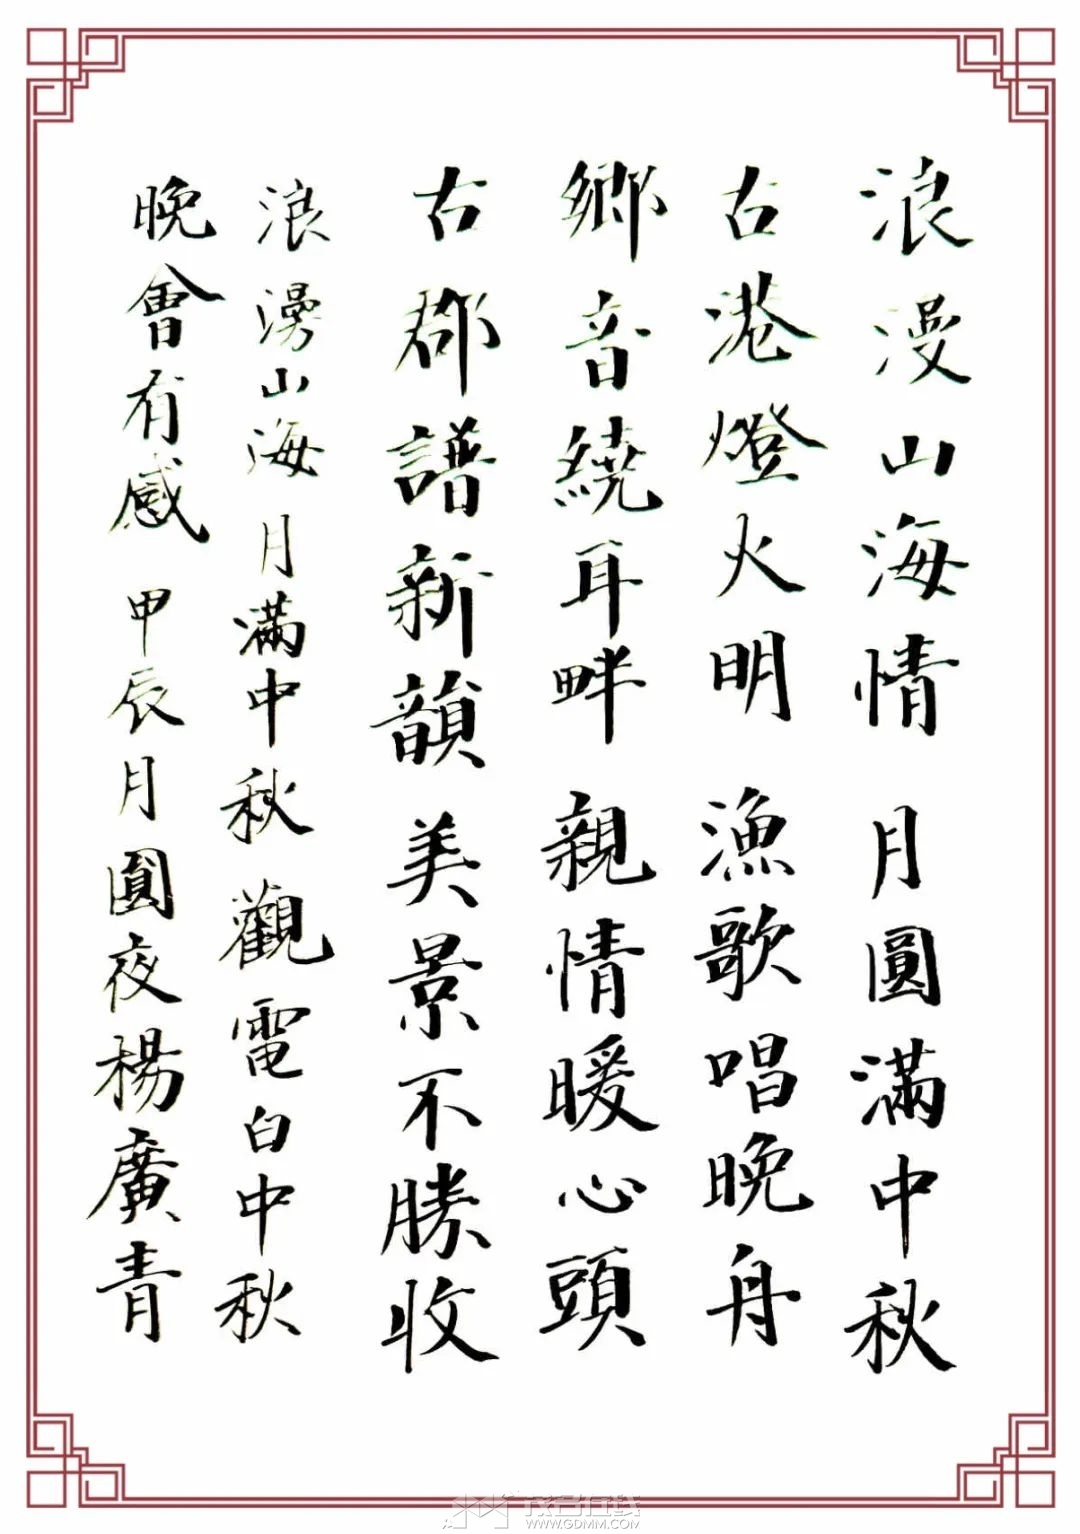 浪漫山海情 月圓滿中秋
古港燈火明 漁歌唱晚舟
鄉音繞耳畔 親情暖心頭
古郡譜新韻 美景不勝收
浪漫山海月滿中秋 觀電白中秋
晚會有感 甲辰月圓夜楊廣青
茂名在线
WWW.GDMM.COM